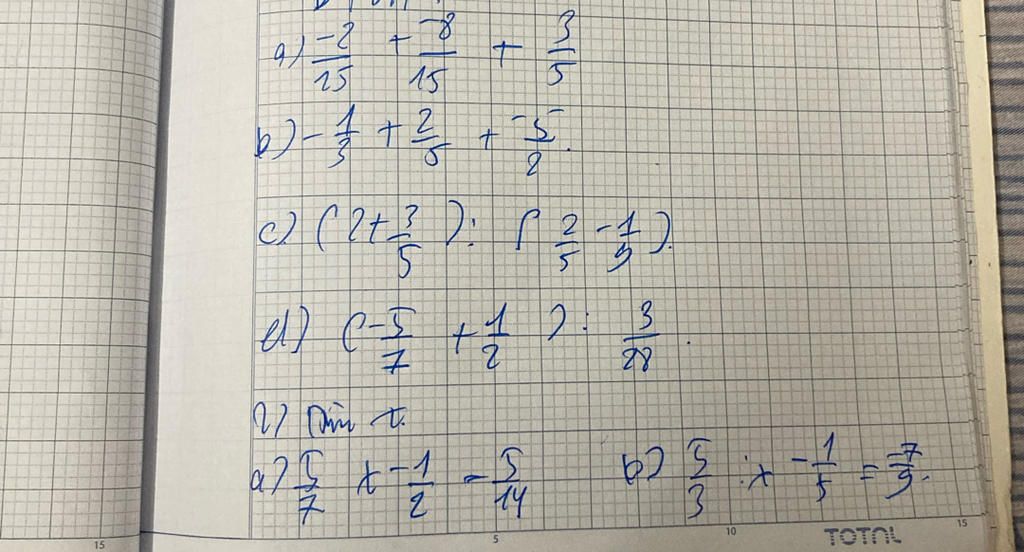 a) -2/15 + -8/15 + 3/5
b) - 1/3 + 2/5 + -5/2.
c) (2 + 3/5) : (2/5 - 1/9).
d) (-5/7 + 1/2) : 3/28.
2) Tìm x.
a) 5/7 x - 1/2 = 5/14 b) 5/3 : x - 1/5 = -7/9.
15 5 10 TOTAL 15